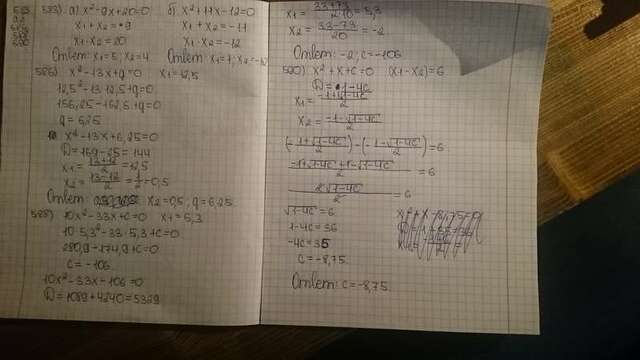 583) а) x²-9x+20=0 б) x²+11x-12=0
x₁+x₂=9 x₁+x₂=-11
x₁x₂=20 x₁x₂=-12
Ответ: x₁=5; x₂=4 Ответ: x₁=1; x₂=-12
x²-13x+q=0 x₁=12,5
12,5²-13·12,5+q=0
156,25-162,5+q=0
q=6,25
x²-13x+6,25=0
D=169-25=144
x₁=(13+12)/2=12,5
x₂=(13-12)/2=1/2=0,5
Ответ: x₂=0,5; q=6,25
10x²-33x+c=0 x₁=5,3
10·5,3²-33·5,3+c=0
280,9-174,9+c=0
c=-106
10x²-33x-106=0
D=1089+4240=5329
x₂=(33-73)/20=-2
Ответ: -2; c=-106
x²+x+c=0 (x₁-x₂)=6
D=1-4c
x₁=(-1+√1-4c)/2
x₂=(-1-√1-4c)/2
((-1+√1-4c)/2)-((-1-√1-4c)/2)=6
(-1+√1-4c+1+√1-4c)/2=6
2√1-4c/2=6
√1-4c=6
1-4c=36
-4c=35
c=-8,75
Ответ: c=-8,75